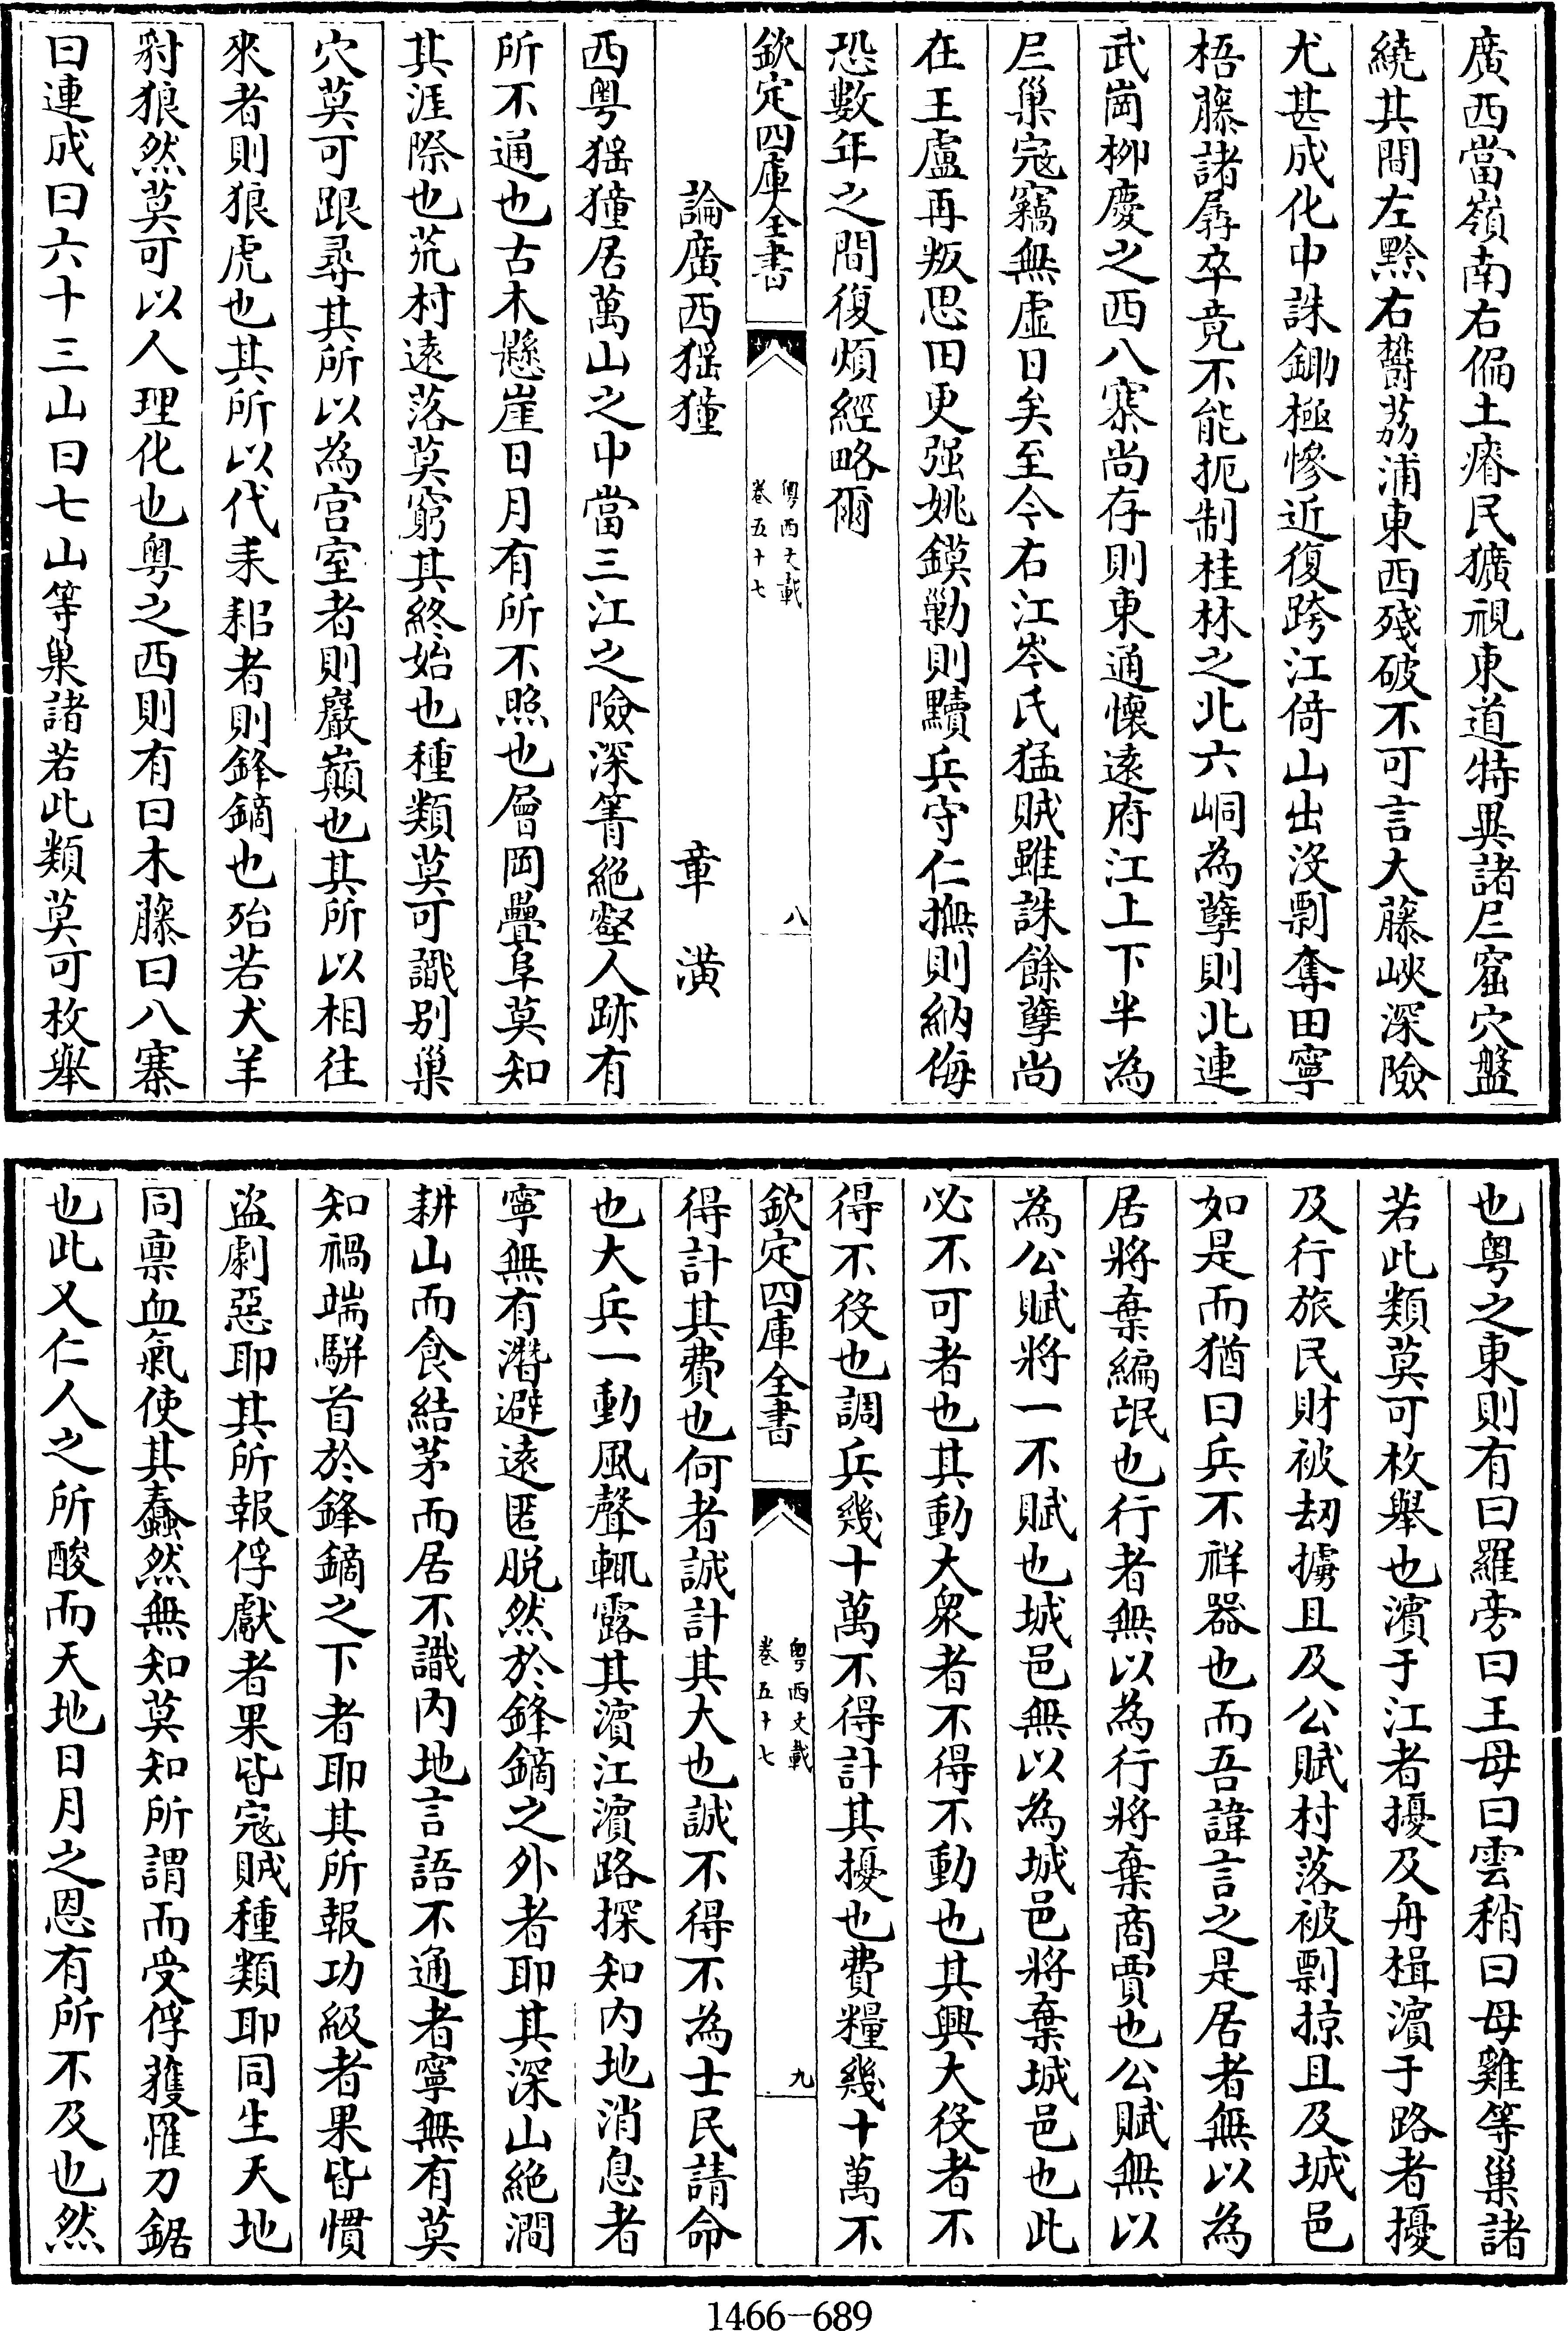 廣西當嶺南右偏土瘠民獷視東道特異諸巵窟穴盤
繞其間左黔右鬱荔浦東西殘破不可言大藤峽深險
尤甚成化中誅鋤極慘近復跨江倚山出没剽奪田寧
梧藤諸孱卒竟不能扼制桂林之北六峒為孽則北連
武崗柳慶之西八寨尚存則東通懷遠府江上下半為
巵巢寇竊無虛日矣至今右江岑氏猛賊雖誅餘孽尚
在王盧再叛思田更强姚鏌勦則黷兵守仁撫則納侮
恐數年之間復煩經略爾
欽定四庫全書
粤西文載
卷五十七
八
論廣西猺獞
章潢
西粤猺獞居萬山之中當三江之險深箐絶壑人跡有
所不通也古木懸崖日月有所不照也層岡疊阜莫知
其涯際也荒村遠落莫窮其終始也種類莫可識别巢
穴莫可跟尋其所以為宫室者則巖巔也其所以相往
來者則狼虎也其所以代耒耜者則鋒鏑也殆若犬羊
豺狼然莫可以人理化也粤之西則有曰木藤曰八寨
曰連成曰六十三山曰七山等巢諸若此類莫可枚舉
也粤之東則有曰羅旁曰王母曰雲稍曰母雞等巢諸
若此類莫可枚舉也濵于江者擾及舟楫濵于路者擾
及行旅民財被刼擄且及公賦村落被剽掠且及城邑
如是而猶曰兵不祥器也而吾諱言之是居者無以為
居將棄編氓也行者無以為行將棄商賈也公賦無以
為公賦將一不賦也城邑無以為城邑將棄城邑也此
必不可者也其動大衆者不得不動也其興大役者不
得不役也調兵幾十萬不得計其擾也費糧幾十萬不
欽定四庫全書
粤西文載
卷五十七
九
得計其費也何者誠計其大也誠不得不為士民請命
也大兵一動風聲輒露其濵江濵路探知内地消息者
寧無有潛避遠匿脱然於鋒鏑之外者耶其深山絕澗
耕山而食結茅而居不識内地言語不通者寧無有莫
知禍端駢首於鋒鏑之下者耶其所報功級者果皆慣
盗劇惡耶其所報俘獻者果皆寇賊種類耶同生天地
同禀血氣使其蠢然無知莫知所謂而受俘獲罹刀鋸
也此又仁人之所酸而天地日月之恩有所不及也然
1466-689